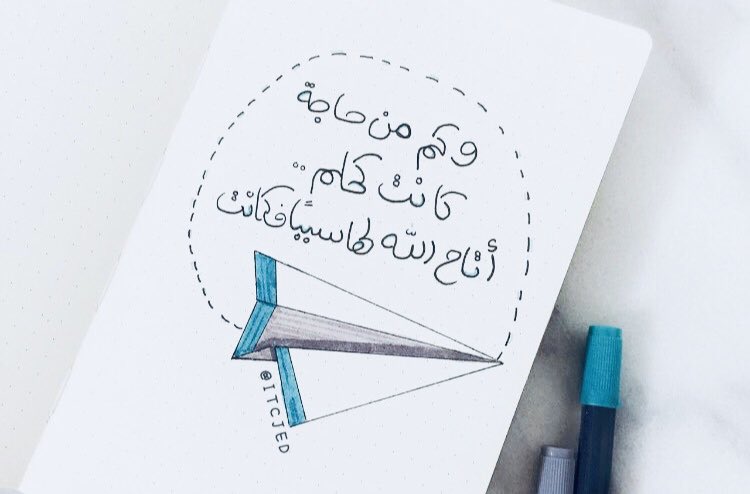 وكم من حاجة
كانت كحلم..
أتاح الله لها سببًا فكانت
@ITCJED